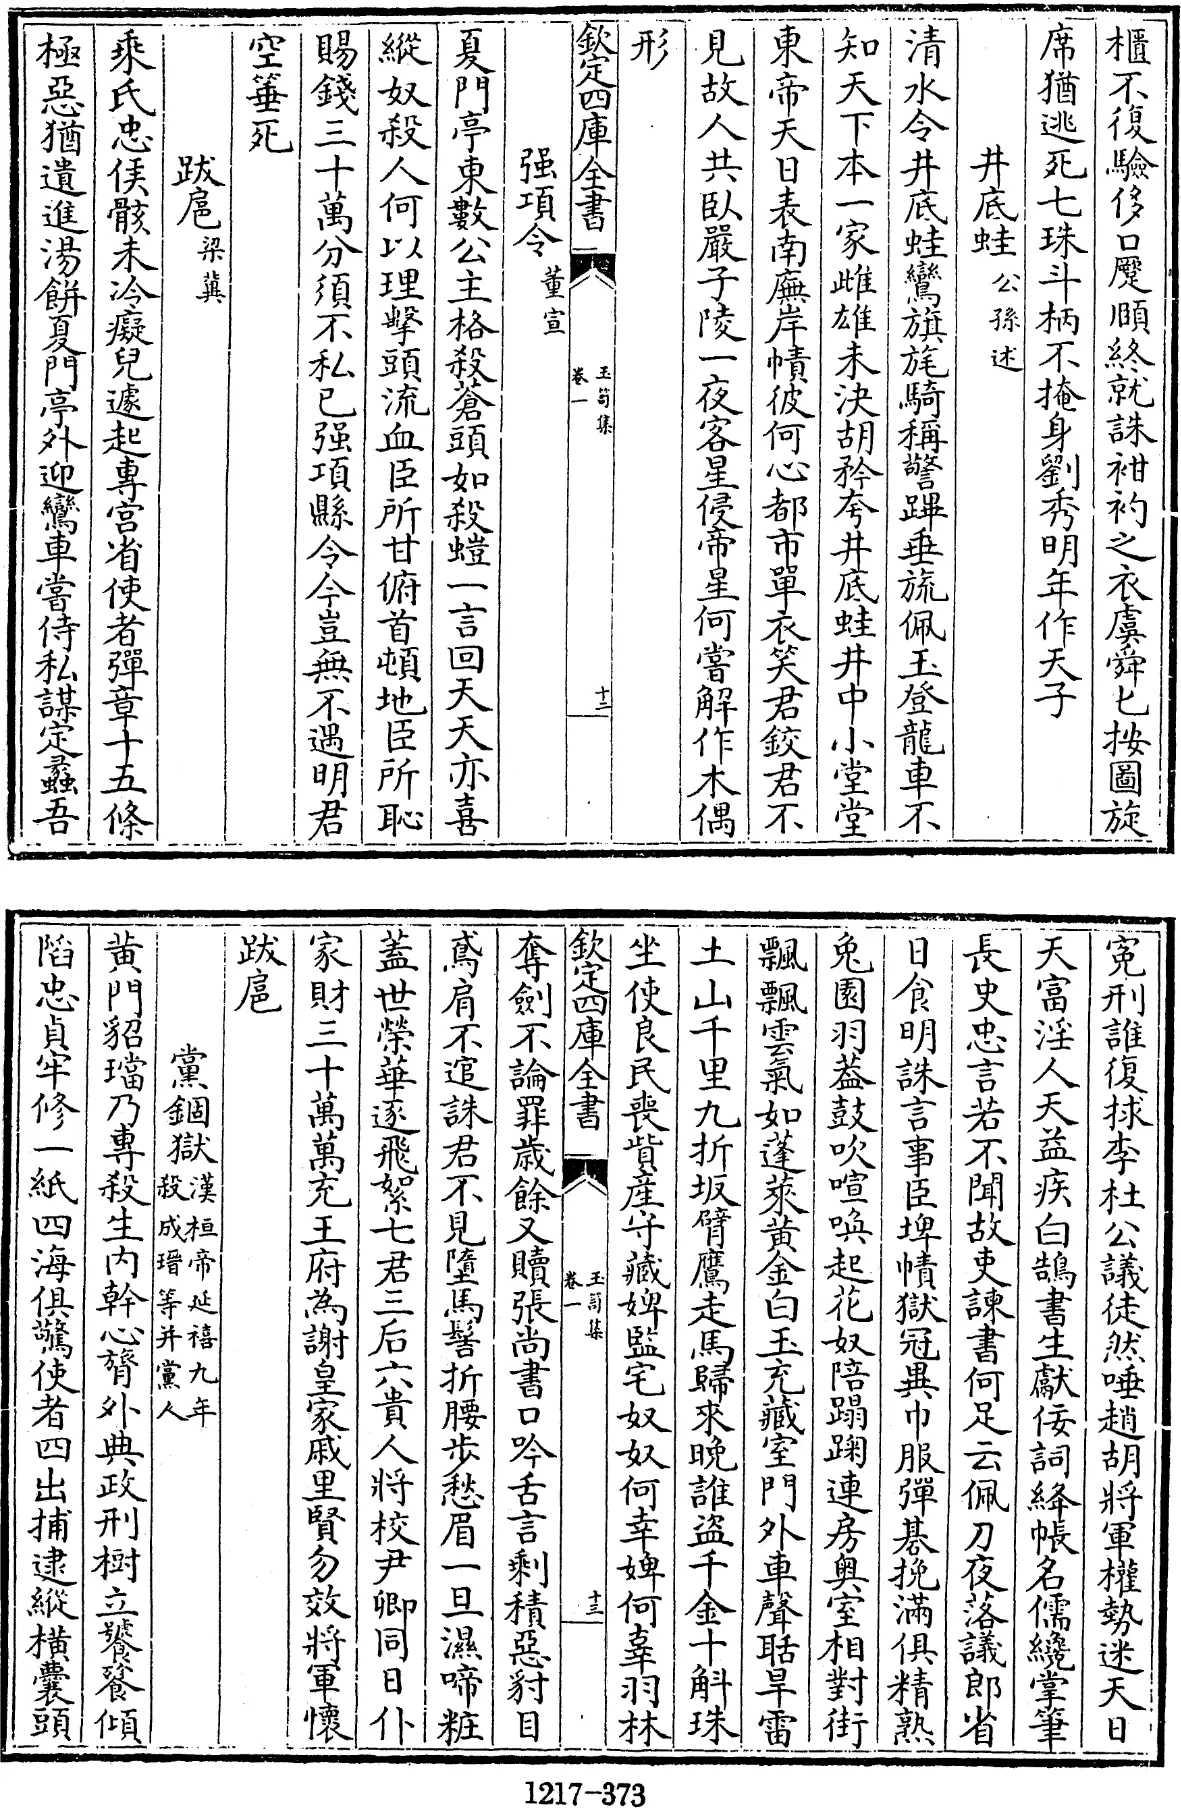 櫃不復驗侈口蹷頤終就誅袝礿之衣虞舜匕按圖旋
席猶逃死七珠斗柄不掩身劉秀明年作天子
井底蛙公孫述
清水令井底蛙鸞旗旄騎稱警蹕垂旒佩玉登龍車不
知天下本一家雌雄未決胡矜夸井底蛙井中小堂堂
東帝天日表南廡岸幘彼何心都市單衣笑君鉸君不
見故人共臥嚴子陵一夜客星侵帝星何嘗解作木偶
形
欽定四庫全書
玉笥集
卷一
十二
强項令董宣
夏門亭東數公主格殺蒼頭如殺螘一言回天天亦喜
縱奴殺人何以理擊頭流血臣所甘俯首頓地臣所恥
賜錢三十萬分須不私已强項縣令今豈無不遇明君
空箠死
跋扈梁冀
乘氏忠侯骸未冷癡兒遽起專宮省使者彈章十五條
極惡猶遺進湯餅夏門亭外迎鸞車嘗侍私謀定蠡吾
寃刑誰復捄李杜公議徒然唾趙胡將軍權勢迷天日
天富淫人天益疾白鵠書生獻佞詞絳帳名儒纔掌筆
長史忠言若不聞故吏諫書何足云佩刀夜落議郎省
日食明誅言事臣埤幘獄冠異巾服彈棊挽滿俱精熟
兔園羽葢鼓吹喧喚起花奴陪蹋踘連房奥室相對街
飄飄雲氣如蓬萊黃金白玉充藏室門外車聲聒旱雷
土山千里九折坂臂鷹走馬歸來晚誰盜千金十斛珠
坐使良民喪貲産守藏婢監宅奴奴何幸婢何辜羽林
欽定四庫全書
玉笥集
卷一
十三
奪劍不論罪歲餘又贖張尚書口吟舌言剩積惡豺目
鳶肩不逭誅君不見墮馬髻折腰步愁眉一旦濕啼粧
蓋世榮華逐飛絮七君三后六貴人將校尹卿同日仆
家財三十萬萬充王府為謝皇家戚里賢勿效將軍懷
跋扈
黨錮獄漢桓帝延禧九年殺成瑨等并黨人
黃門貂璫乃專殺生内幹心膂外典政刑樹立饕餮傾
陷忠貞牢修一紙四海俱驚使者四出捕逮縱橫囊頭
1217-373